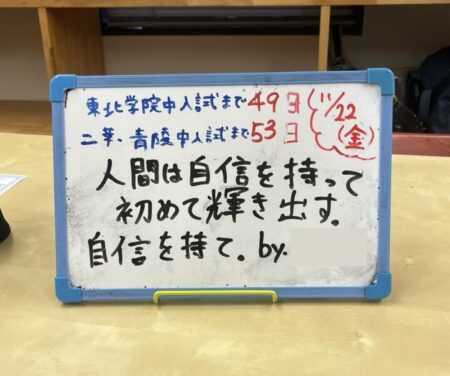 東北学院中入試まで49日
二華、青陵中入試まで53日
11/22
(金)
人間は自信を持って
初めて輝き出す。
自信を持て。by.